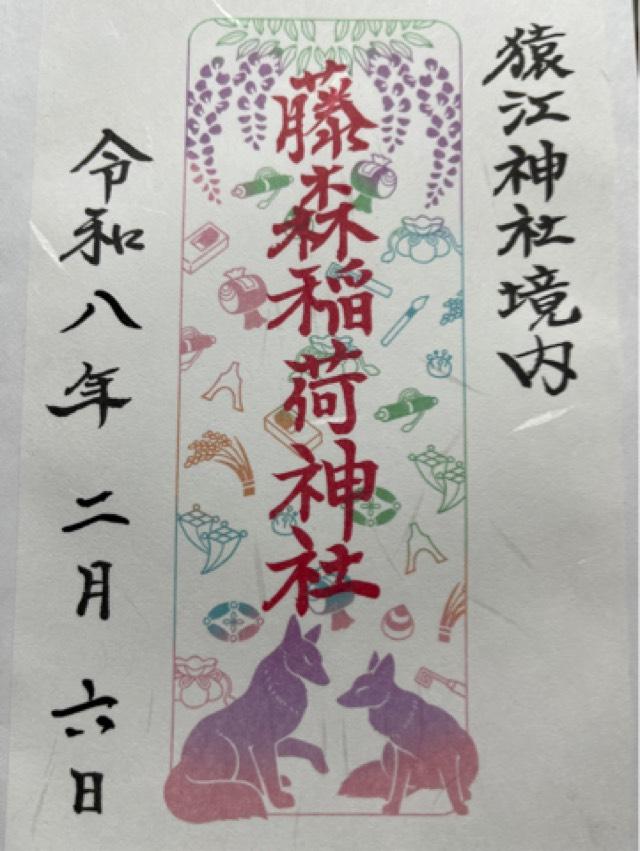 猿江神社境内
藤森稲荷神社
令和八年 二月 六日